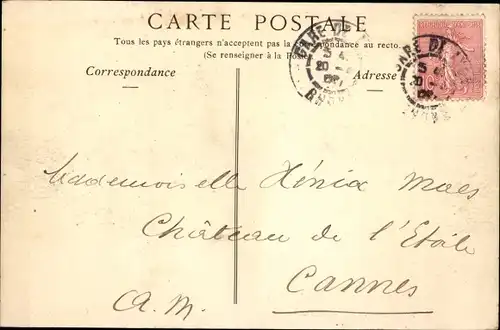 CARTE POSTALE
Tous les pays étrangers n'acceptent pas la correspondance au recto.
(Se renseigner à la Poste)
Correspondance
Adresse
GARE DE
5
20
RHÔNE
GARE DE
5
20
Mademoiselle Xénia Maes
Château de l'Etoile
Cannes
A.M.